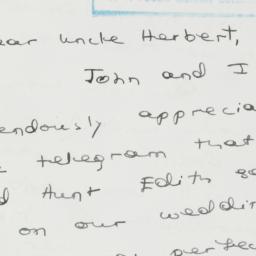 ear Uncle Herbert,
John and I
endously apprecia
telegram that
d Aunt Edith se
on our weddin
perfec